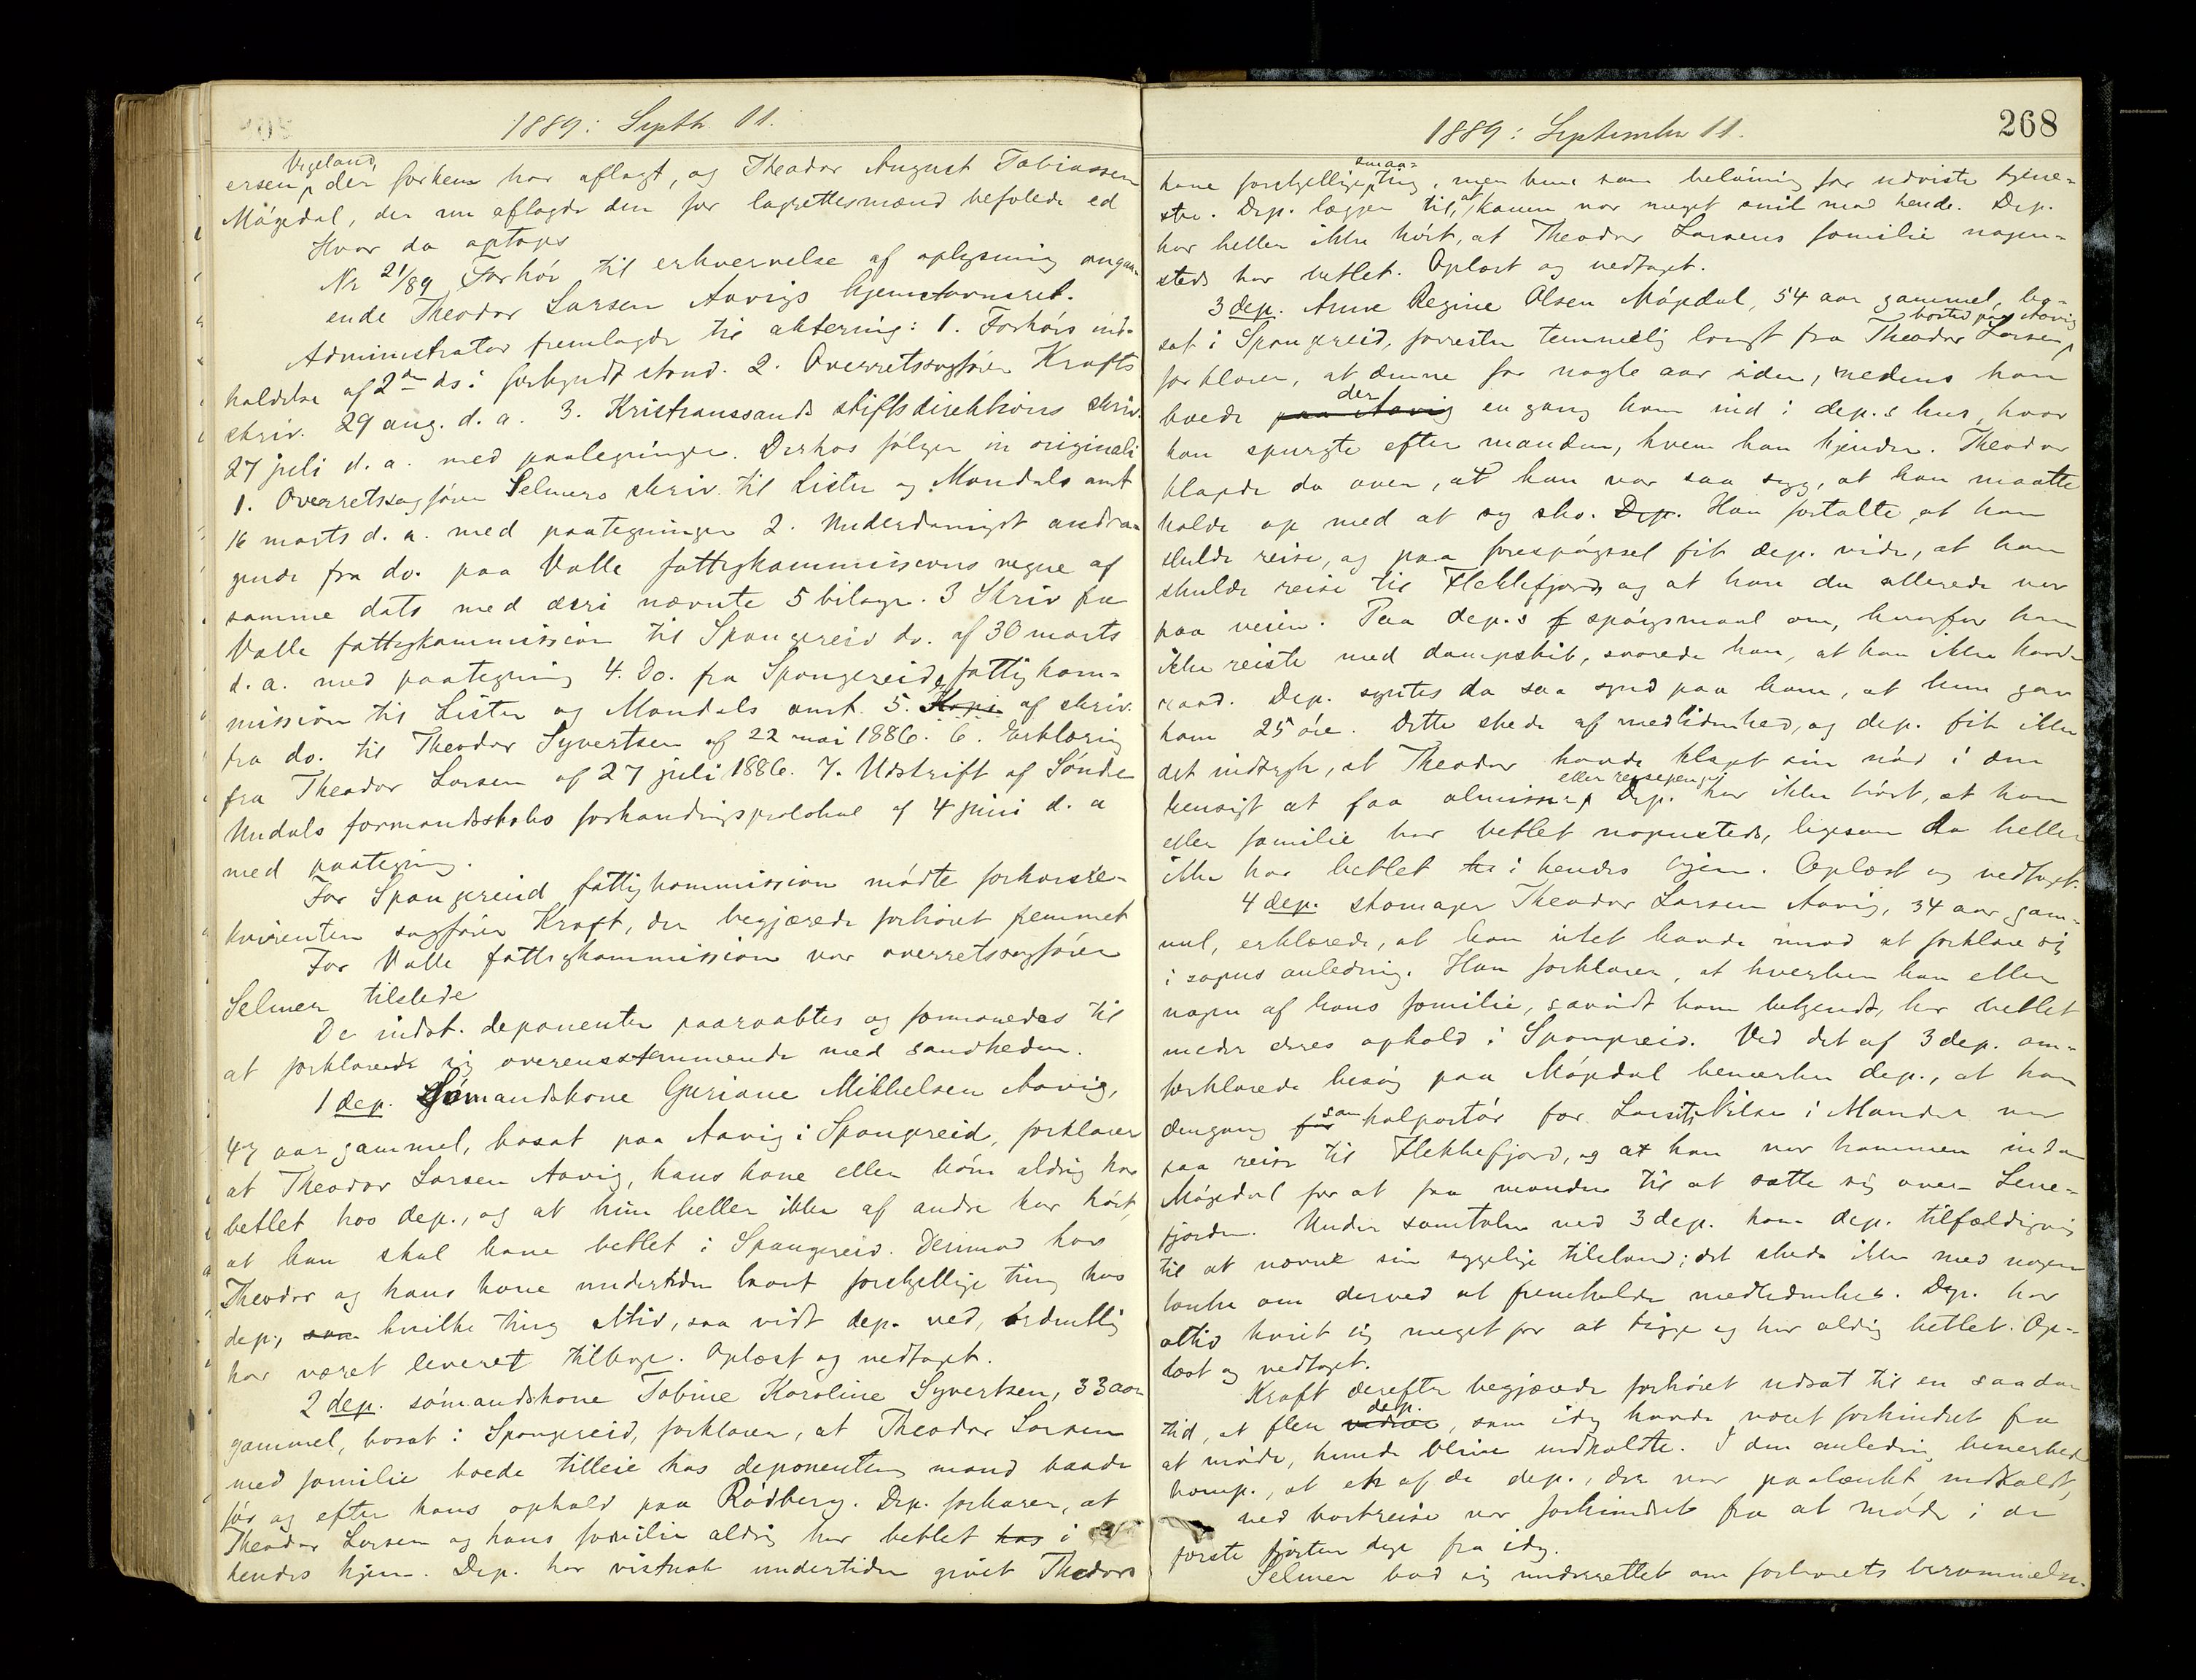 1889: Septb. 11.
Vigeland,
ersen, der forhen har aflagt, og Theodor August Tobiassen
Mågedal, der nu aflagde den for lagrettesmænd befalede ed
Hvor da optoges
Nr 21/89 Forhör til erhvervelse af oplysning angaa-
ende Theodor Larsen Aavigs hjemstavnsret.
Administrator fremlagde til aktering: 1. Forhörs ind-
holdelse af 2den ds. i forkyndt stand. 2. Overretssagförer Krafts
skriv. 29 aug. d. a. 3. Kristianssands stiftsdirektions skriv.
27 juli d. a. med paategninger. Derhos fölger in originali
1. Overretssagförer Selmers skriv. til Lister og Mandals amt
16 marts d. a. med paategninger 2. Underdanigst andra-
gende fra do. paa Valle fattigkommissions vegne af
samme dato med deri nævnte 5 bilage. 3 Skriv fra
Valle fattigkommission til Spangereid do. af 30 marts
d. a. med paategning 4. Do. fra Spangereids fattigkom-
mission til Lister og Mandals amt. 5. Kopi af skriv.
fra do. til Theodor Syvertsen af 22 mai 1886. 6. Erklæring
fra Theodor Larsen af 27 juli 1886. 7. Udskrift af Söndre
Undals formandskabs forhandlingsprotokol af 4 juni d. a
med paategning.
For Spangereid fattigkommission mödte forhörsre-
kvirenten sagförer Kraft, der begjærede forhöret fremmet
For Valle fattigkommission var overretssagförer
Selmer tilstede
De indst. deponenter paaraabtes og formanedes til
at forklarede sig overensstemmende med sandheden.
1 dep. Sömandskone Guriane Mikkelsen Aavig,
47 aar gammel, bosat paa Aavig i Spangereid, forklarer
at Theodor Larsen Aavig, hans kone eller börn aldrig har
betlet hos dep., og at hun heller ikke af andre har hört,
at han skal have betlet i Spangereid. Derimod har
Theodor og hans kone undertiden laant forskjellige ting hos
dep., som hvilke ting altid, saa vidt dep. ved, ordentlig
har været leveret tilbage. Oplæst og vedtaget.
2 dep. sömandskone Tobine Karoline Syvertsen, 33 aar
gammel, bosat i Spangereid, forklarer, at Theodor Larsen
med familie boede tilleie hos deponentens mand baade
för og efter hans ophold paa Rödberg. Dep. forklarer, at
Theodor Larsen og hans familie aldrig har betlet hos i
hendes hjem. Dep. har vistnok undertiden givet Theodors
1889: September 11.
268
smaa-
kone forskjellige ting, men kun som belöning for udviste tjene-
ster. Dep. lægger til, at konen var meget snil mod hende. Dep.
har heller ikke hört, at Theodor Larsens familie nogen-
steds har betlet. Oplæst og vedtaget.
3 dep. Anne Regine Olsen Mågedal, 54 aar gammel, bo-
bosted paa Aavig
sat i Spangereid, forresten temmelig langt fra Theodor Larsens,
forklarer, at denne for nogle aar siden, medens han
der
boede paa Aavig en gang kom ind i dep.s hus, hvor
han spurgte efter manden, hvem han kjender. Theodor
klagede da over, at han var saa syg, at han maatte
holde op med at sy sko. Dep. Han fortalte, at han
skulde reise, og paa forespörgsel fik dep. vide, at han
skulde reise til Flekkefjord, og at han da allerede var
paa veien. Paa dep.s f spörgsmaal om, hvorfor han
ikke reiste med dampskib, svarede han, at han ikke havde
raad. Dep. syntes da saa synd paa ham, at hun gav
ham 25 öre. Dette skede af medlidenhed, og dep. fik ikke
det indtryk, at Theodor havde klaget sin nöd i den
eller reisepenge
hensigt at faa almisse, Dep. har ikke hört, at han
eller familie har betlet nogensteds, ligesom da heller
ikke har betlet i hendes hjem. Oplæst og vedtaget.
4 dep. skomager Theodor Larsen Aavig, 34 aar gam-
mel, erklærede, at han intet havde imod at forklare sig
i sagens anledning. Han forklarer, at hverken han eller
nogen af hans familie, savidt ham bekjendt, har betlet
under deres ophold i Spangereid. Ved det af 3 dep. om-
forklarede besög paa Mågedal bemærker dep., at han
dengang for som kolportör for Lars Nilsen i Mandal var
paa reise til Flekkefjord, og at han var kommen ind
Mågedal for at faa manden til at sætte sig over Lene-
fjorden. Under samtalen med 3 dep. kom dep. tilfældigvis
til at nævne sin sygelige tilstand; det skede ikke med nogen
tanke om derved at fremkalde medlidenhed. Dep. har
altid kviet sig meget for at tigge og har aldrig betlet. Op-
læst og vedtaget.
Kraft derefter begjærede forhöret udsat til en saadan
dep.
tid, at flere vidner, som idag havde været forhindret fra
at möde, kunde blive indkaldte. I den anledning bemerkede
komp., at en af de dep., der var paatænkt indkaldt,
ved bortreise var forhindret fra at möde i de
förste fjorten dage fra idag.
Selmer bad sig underrettet om forhörets berammelse.